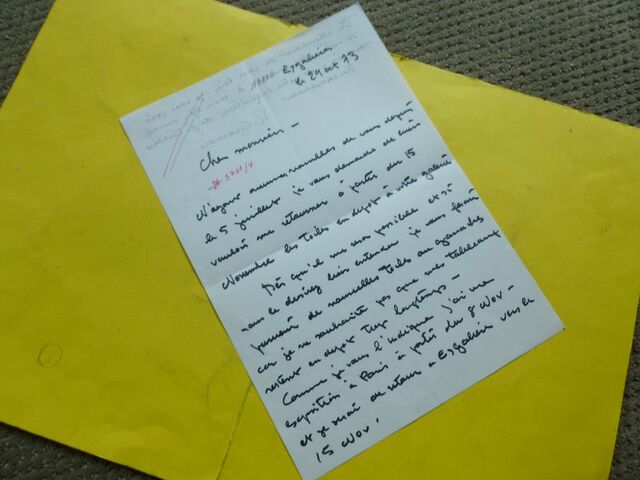 Eygalières
le 29 oct 73
Cher monsieur -
N'ayant aucunes nouvelles de vous depuis
le 5 juillet je vous demande de bien
vouloir me retourner à partir du 15
Novembre les toiles en dépot à votre galerie
Dès qu'il me sera possible et si
vous le désirez bien entendu je vous ferai
parvenir de nouvelles toiles au
car je ne souhaite pas que mes tableaux
restent en dépot trop longtemps -
Comme je vous l'indique j'ai une
exposition à Paris à partir du 8 Nov -
et je serai de retour à Eygalières vers le
15 Nov.